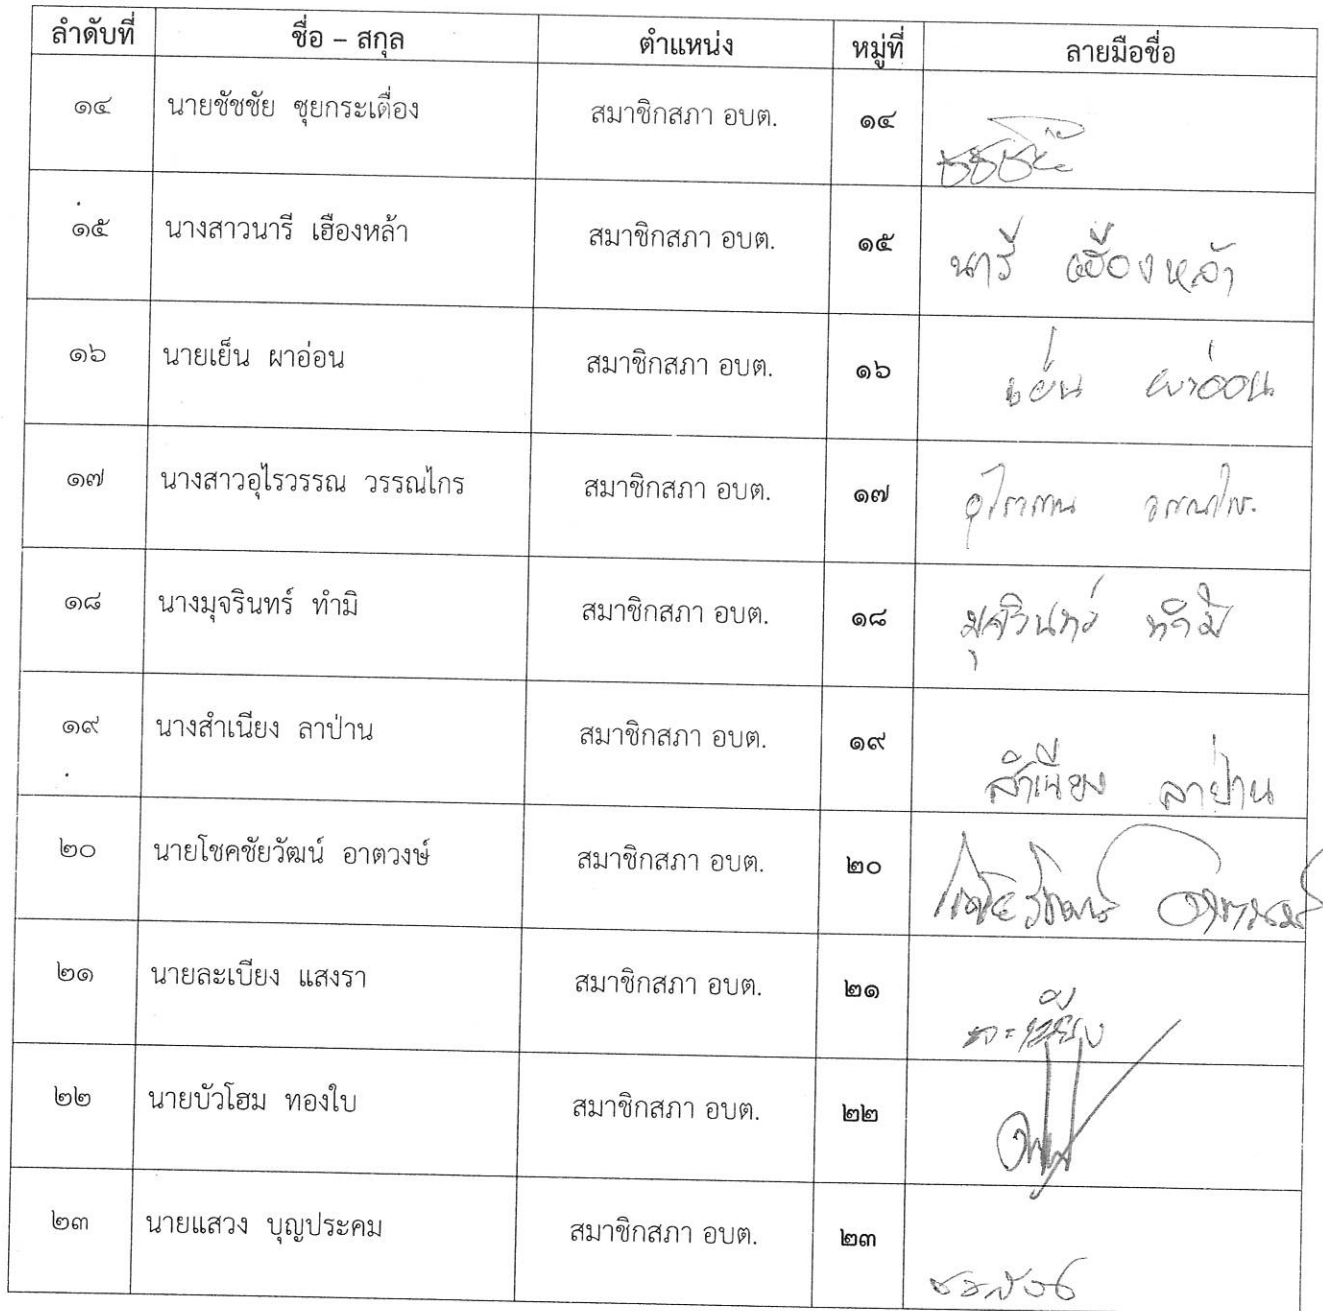 ลำดับที่ ชื่อ – สกุล ตำแหน่ง หมู่ที่ ลายมือชื่อ
๑๔ นายชัชชัย ซุยกระเดื่อง สมาชิกสภา อบต. ๑๔ ชัชชัย
๑๕ นางสาวนารี เฮืองหล้า สมาชิกสภา อบต. ๑๕ นารี เฮืองหล้า
๑๖ นายเย็น ผาอ่อน สมาชิกสภา อบต. ๑๖ เย็น ผาอ่อน
๑๗ นางสาวอุไรวรรณ วรรณไกร สมาชิกสภา อบต. ๑๗ อุไรวรรณ วรรณไกร
๑๘ นางมุจรินทร์ ทำมิ สมาชิกสภา อบต. ๑๘ มุจรินทร์ ทำมิ
๑๙ นางสำเนียง ลาป่าน สมาชิกสภา อบต. ๑๙ สำเนียง ลาป่าน
๒๐ นายโชคชัยวัฒน์ อาตวงษ์ สมาชิกสภา อบต. ๒๐
๒๑ นายละเบียง แสงรา สมาชิกสภา อบต. ๒๑ ละเบียง
๒๒ นายบัวโฮม ทองใบ สมาชิกสภา อบต. ๒๒
๒๓ นายแสวง บุญประคม สมาชิกสภา อบต. ๒๓